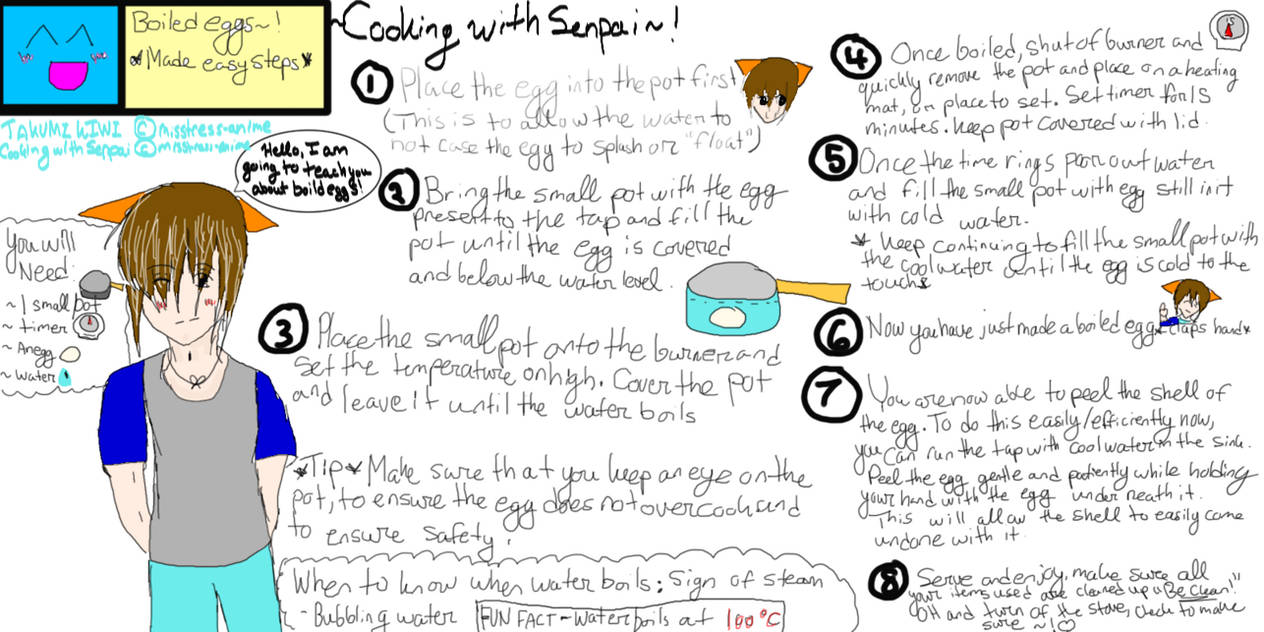 Boiled eggs~!
*Made easy steps*
~Cooking with Senpai~!
TAKUMI KIWI © misstress-anime
Cooking with Senpai © misstress-anime
Hello, I am
going to teach you
about boild eggs!
You will
Need:
~1 small pot
~ timer
~ An egg
~ water
1 Place the egg into the pot first
(This is to allow the water to
not case the egg to splash or "float")
2 Bring the small pot with the egg
present to the tap and fill the
pot until the egg is covered
and below the water level.
3 Place the small pot onto the burner and
set the temperature on high. Cover the pot
and leave it until the water boils
*Tip* Make sure that you keep an eye on the
pot, to ensure the egg does not overcook and
to ensure safety!
When to know when water boils: Sign of steam
- Bubbling water
FUN FACT - Water boils at 100°C
4 Once boiled, shut of burner and
quickly remove the pot and place on a heating
mat, or place to set. Set timer for 15
minutes. Keep pot covered with lid.
15
5 Once the time rings pour out water
and fill the small pot with egg still in it
with cold water.
* Keep continuing to fill the small pot with
the cool water until the egg is cold to the
touch*
6 Now you have just made a boiled egg *claps hand*
7 You are now able to peel the shell of
the egg. To do this easily/efficiently now,
you can run the tap with cool water in the sink.
Peel the egg gentle and patiently while holding
your hand with the egg under neath it.
This will allow the shell to easily come
undone with it.
8 Serve and enjoy, make sure all
your items used are cleaned up "Be clean!"
Oh and turn of the stove, check to make
sure ~!♡